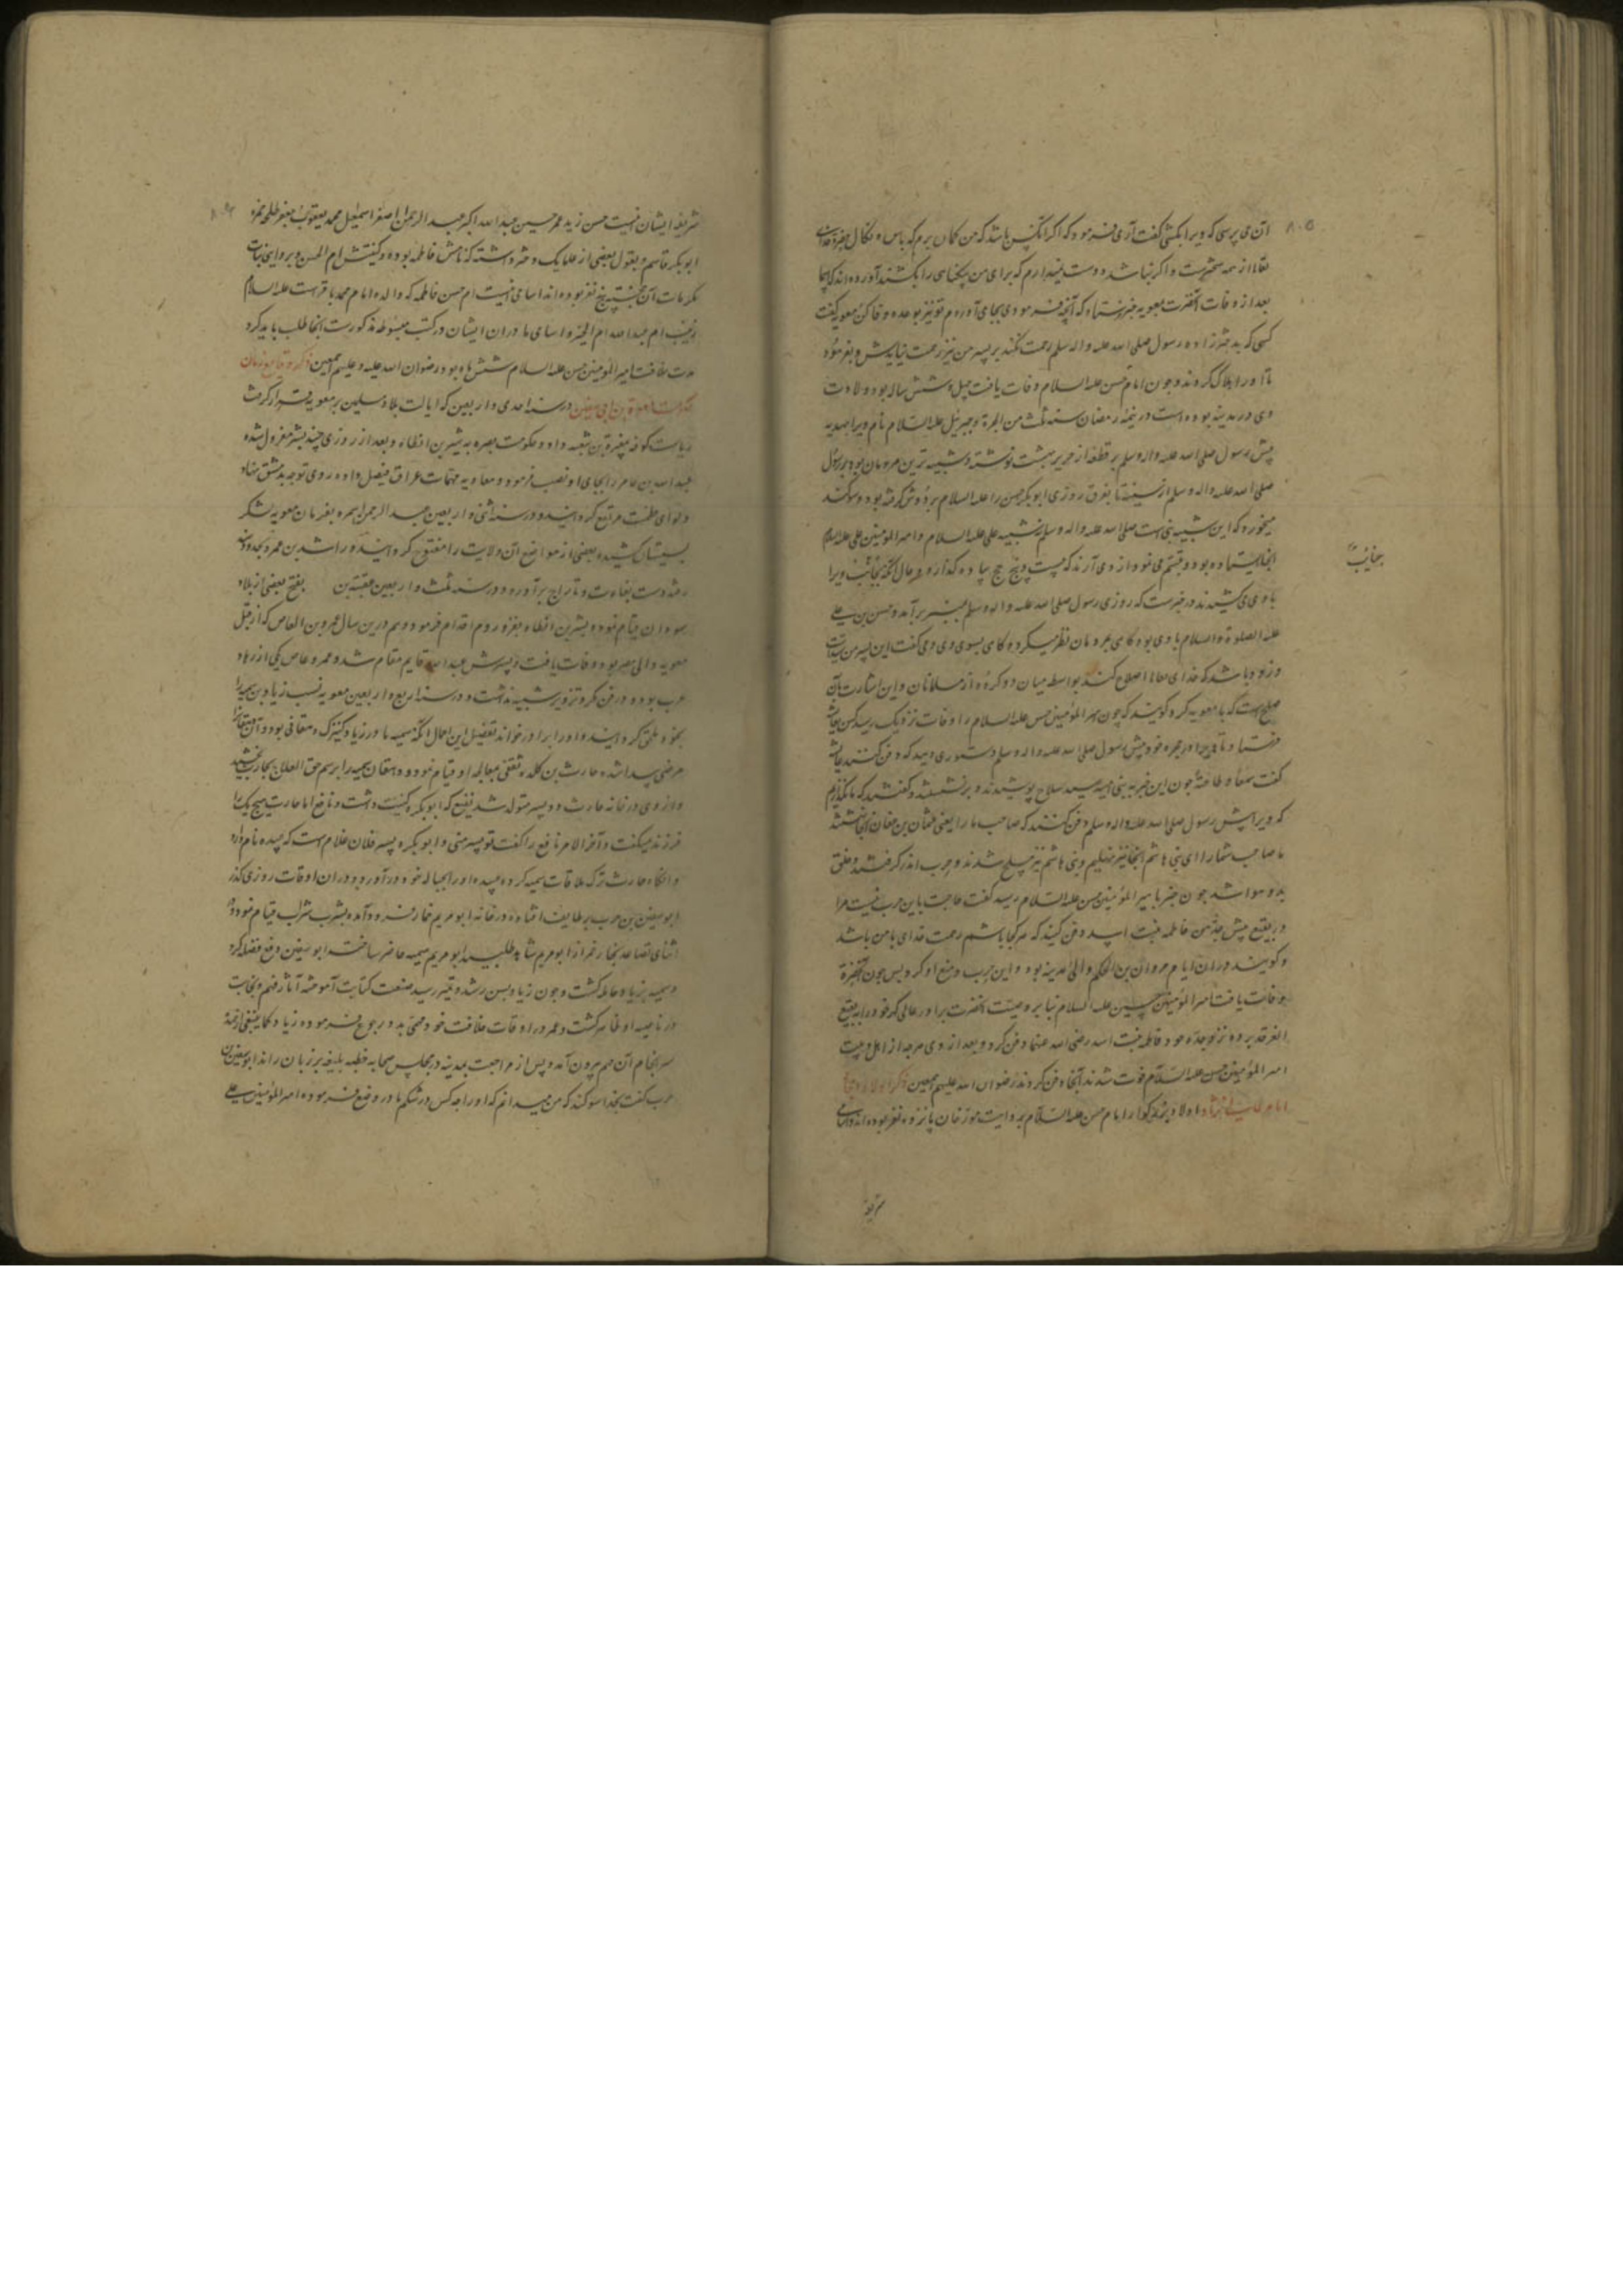 ازین می پرسی که ویرا بکشی گفت آری فرمود که اگر آنکس باشد که من گمان برم که باس و نکال حضرت خدای
تعالی از همه سختر است و اگر نباشد دوست نمیدارم که برای من بیگناهی را بکشند آورده اند که اسما
بعد از وفات آنحضرت بمعویه خبر فرستاد که آنچه فرمودی بجای آوردم تو نیز بوعده وفا کن معویه گفت
کسی که بر جگر زاده رسول صلی الله علیه واله وسلم رحمت نکند بر پسر من نیز رحمت نیاید پس بفرمود
تا او را هلاک کردند و چون امام حسن علیه السلام وفات یافت چهل و شش ساله بود و ولادت
وی در مدینه بوده است در نیمه رمضان سنه ثلث من الهجرة و جبرئیل علیه السلام نام ویرا هدیه
پیش رسول صلی الله علیه واله وسلم بر قطعه از حریر بهشت نوشته و شبیه ترین مردمان بود برسول
صلی الله علیه واله وسلم از سینه تا بفرق روزی ابوبکر حسن را علیه السلام بر دوش گرفته بود و سوگند
میخورد که این شبیه نبی است صلی الله علیه واله وسلم نه شبیه علی علیه السلام و امیر المؤمنین علی علیه السلام
آنجا ایستاده بود و تبسم می نمود از وی آرند که بیست و پنج حج پیاده گذارد و حال آنکه نجائب ویرا
جنائب
با وی می کشیدند در خبرست که روزی رسول صلی الله علیه واله وسلم بمنبر برآمد و حسن بن علی
علیه الصلوة والسلام با وی بود گاهی بمردمان نظر میکرد و گاهی بسوی وی و می گفت این پسر من سیدست
و زود باشد که خدای تعالی اصلاح کند بواسطه میان دو گروه از مسلمانان و این اشارت بآن
صلح است که با معویه کرد و گویند که چون امیر المؤمنین حسن علیه السلام را وفات نزدیک رسید کس بعایشه
فرستاد تا ویرا در حجره خود پیش رسول صلی الله علیه واله وسلم دستوری دهد که دفن کنند عایشه
گفت سمعا و طاعة چون این خبر به بنی امیه رسید سلاح پوشیدند و برنشستند و گفتند که ما نگذاریم
که ویرا پیش رسول صلی الله علیه واله وسلم دفن کنند که صاحب ما را یعنی عثمان بن عفان آنجا نگذاشتند
ما صاحب شما را ای بنی هاشم آنجا نیز نهلیم و بنی هاشم نیز مسلح شدند و حرب اندر گرفتند و خلق
بدو هوا شد چون خبر بامیر المؤمنین حسن علیه السلام رسید گفت حاجت باین حرب نیست مرا
در بقیع پیش جده من فاطمه بنت اسد دفن کنید که هر کجا باشم رحمت خدای با من باشد
و گویند در آن ایام مروان بن الحکم والی مدینه بود و این حرب و منع او کرد پس چون آنحضرة
وفات یافت امیر المؤمنین حسین علیه السلام بنا بر وصیت آنحضرت برادر عالی گهر خود را به بقیع
الغرقد برده نزد جده خود فاطمه بنت اسد رضی الله عنها دفن کرد و بعد از وی هر چه از اهل بیت
امیر المؤمنین حسن علیه السلام فوت شدند آنجا دفن کردند رضوان الله علیهم اجمعین ذکر اولاد امجاد
امام عالی نژاد اولاد بزرگوار امام حسن علیه السلام بروایت مورخان پانزده نفر بوده اند و اسامی
شریفه
شریفه ایشان اینست حسن زید عمر حسین عبد الله اکبر عبد الرحمن اصغر اسمعیل محمد یعقوب جعفر طلحه حمزه
ابوبکر قاسم و بقول بعضی از علما یک دختر داشته که نامش فاطمه بوده و کنیتش ام الحسن و بروایتی بنات
مکرمات آن پنج نفر بوده اند اسامی اینست ام حسن فاطمه که والده امام محمد باقرست علیه السلام
زینب ام عبد الله ام الخیر و اسامی مادران ایشان در کتب مبسوطه مذکورست آنجا طلب باید کرد
مدت خلافت امیر المؤمنین حسن علیه السلام شش ماه بود رضوان الله علیه و علیهم اجمعین ذکر وقایع زمان
حکومت معویة بن ابی سفین در سنه احدی و اربعین که ایالت بلاد مسلمین بر معویه قرار گرفت
ریاست کوفه بمغیرة بن شعبه داد و حکومت بصره به بشر بن ارطاة و بعد از روزی چند بشر معزول شده
عبد الله بن عامر را بجای او نصب فرمود و معاویه مهمات عراق فیصل داده روی توجه بدمشق نهاد
و لوای عظمت مرتفع گردانید و در سنه اثنی و اربعین عبد الرحمن بن سمره بفرمان معویه لشکر
بسیستان کشیده بعضی از مواضع آن ولایت را مفتوح گردانید و راشد بن عمر و بحدود سند
رفته دست بغارت و تاراج برآورد و در سنه ثلث و اربعین عقبة بن بفتح بعضی از بلاد
سودان قیام نمود و بشر بن ارطاة بغزو روم اقدام فرمود و هم درین سال عمرو بن العاص که از قبل
معویه والی مصر بود وفات یافت و پسرش عبد الله قایم مقام شد و عمرو عاص یکی از زهاد
عرب بوده و در فن مکر و تزویر شبیه نداشت و در سنه اربع و اربعین معویه نسب زیاد بن سمیه را
بخود ملحق گردانید و او را برادر خواند تفصیل این اجمال آنکه سمیه مادر زیاد کنیزک دهقانی بود و آن دهقانرا
مرضی پیدا شده حارث بن کلده ثقفی بمعالجه او قیام نمود و دهقان سمیه را برسم حق العلاج بحارث بخشید
و از وی در خانه حارث دو پسر متولد شد نفیع که ابو بکره کنیت داشت و نافع اما حارث هیچ یک را
فرزند نمیگفت و آخر الامر نافع را گفت تو پسر منی و ابو بکره پسر فلان غلام است که عبیده نام دارد
و آنگاه حارث ترک ملاقات سمیه کرده عبیده او را بحباله خود درآورد و در آن اوقات روزی گذر
ابو سفین بن حرب بر طایف افتاده در خانه ابو مریم خمار فرود آمده بشرب شراب قیام نمود و در
اثنای تصاعد بخار خمر از ابو مریم شاهد طلبید ابو مریم سمیه حاضر ساخت ابو سفین دفع فضله کرد
و سمیه بزیاد حامله گشت و چون زیاد بسن رشد و تمیز رسید صنعت کتابت آموخته آثار فهم و نجابت
در ناصیه او ظاهر گشت و عمر در اوقات خلافت خود مهمی بدو رجوع فرموده زیاد کما ینبغی از عهدهٔ
سرانجام آن مهم بیرون آمد و پس از مراجعت بمدینه در مجلس صحابه خطبه بلیغه بر زبان راند ابو سفین
حرب گفت بخدا سوگند که من میدانم که او را چه کس در شکم مادر وضع فرموده امیر المؤمنین علی